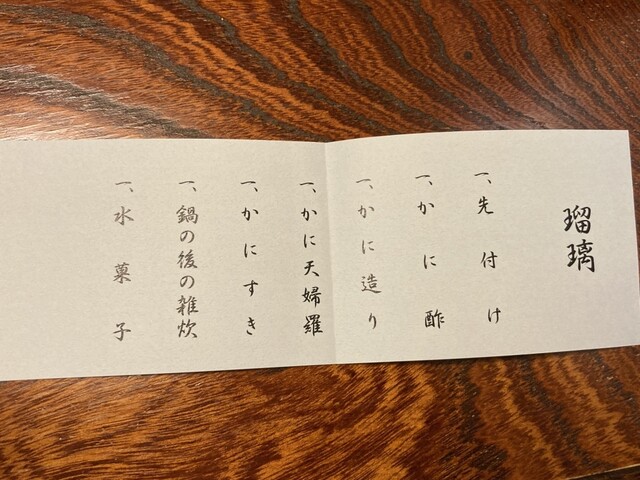 瑠璃
一、先付け
一、かに酢
一、かに造り
一、かに天婦羅
一、かにすき
一、鍋の後の雑炊
一、水菓子